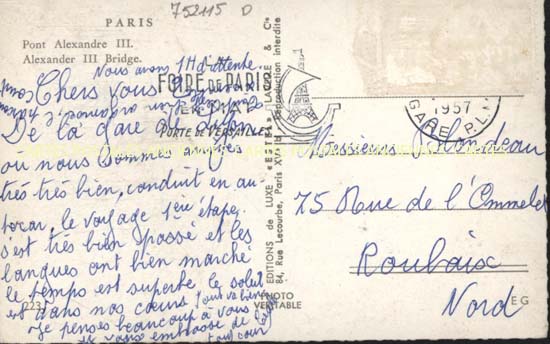 752115 D
PARIS
Pont Alexandre III.
Alexander III Bridge.
Nous avons 1H d'attente
FOIRE DE PARIS
PORTE DE VERSAILLES
Chers vous
De la gare de
où nous sommes arrivés
très très bien, conduit en au
tocar, le voyage 1ère étape,
s'est très bien passé et les
langues ont bien marché
le temps est superbe le soleil
est dans nos cœurs tout va bien
Je penses beaucoup à vous
vous embrasse de
tout cœur
223
EDITIONS de LUXE « ESTEL » LAGNE & Cie
84, Rue Lecourbe, Paris XVe Reproduction interdite
PHOTO
VERITABLE
1957
GARE P.L.M
Messieurs Blondeau
75 Rue de l'Ommelet
Roubaix
Nord
E G